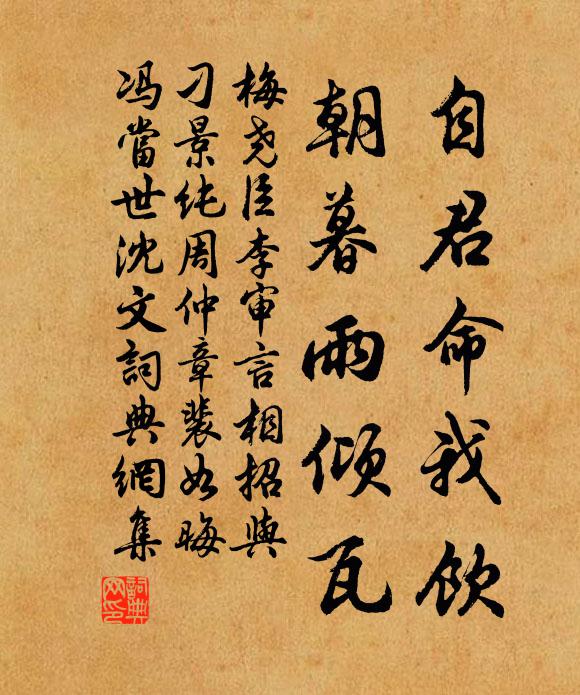 自君命我飲
朝暮雨傾瓦
梅尧臣李审言相招與
刁景纯周仲章裴如晦
冯當世沈文詞典網集
詞典網印